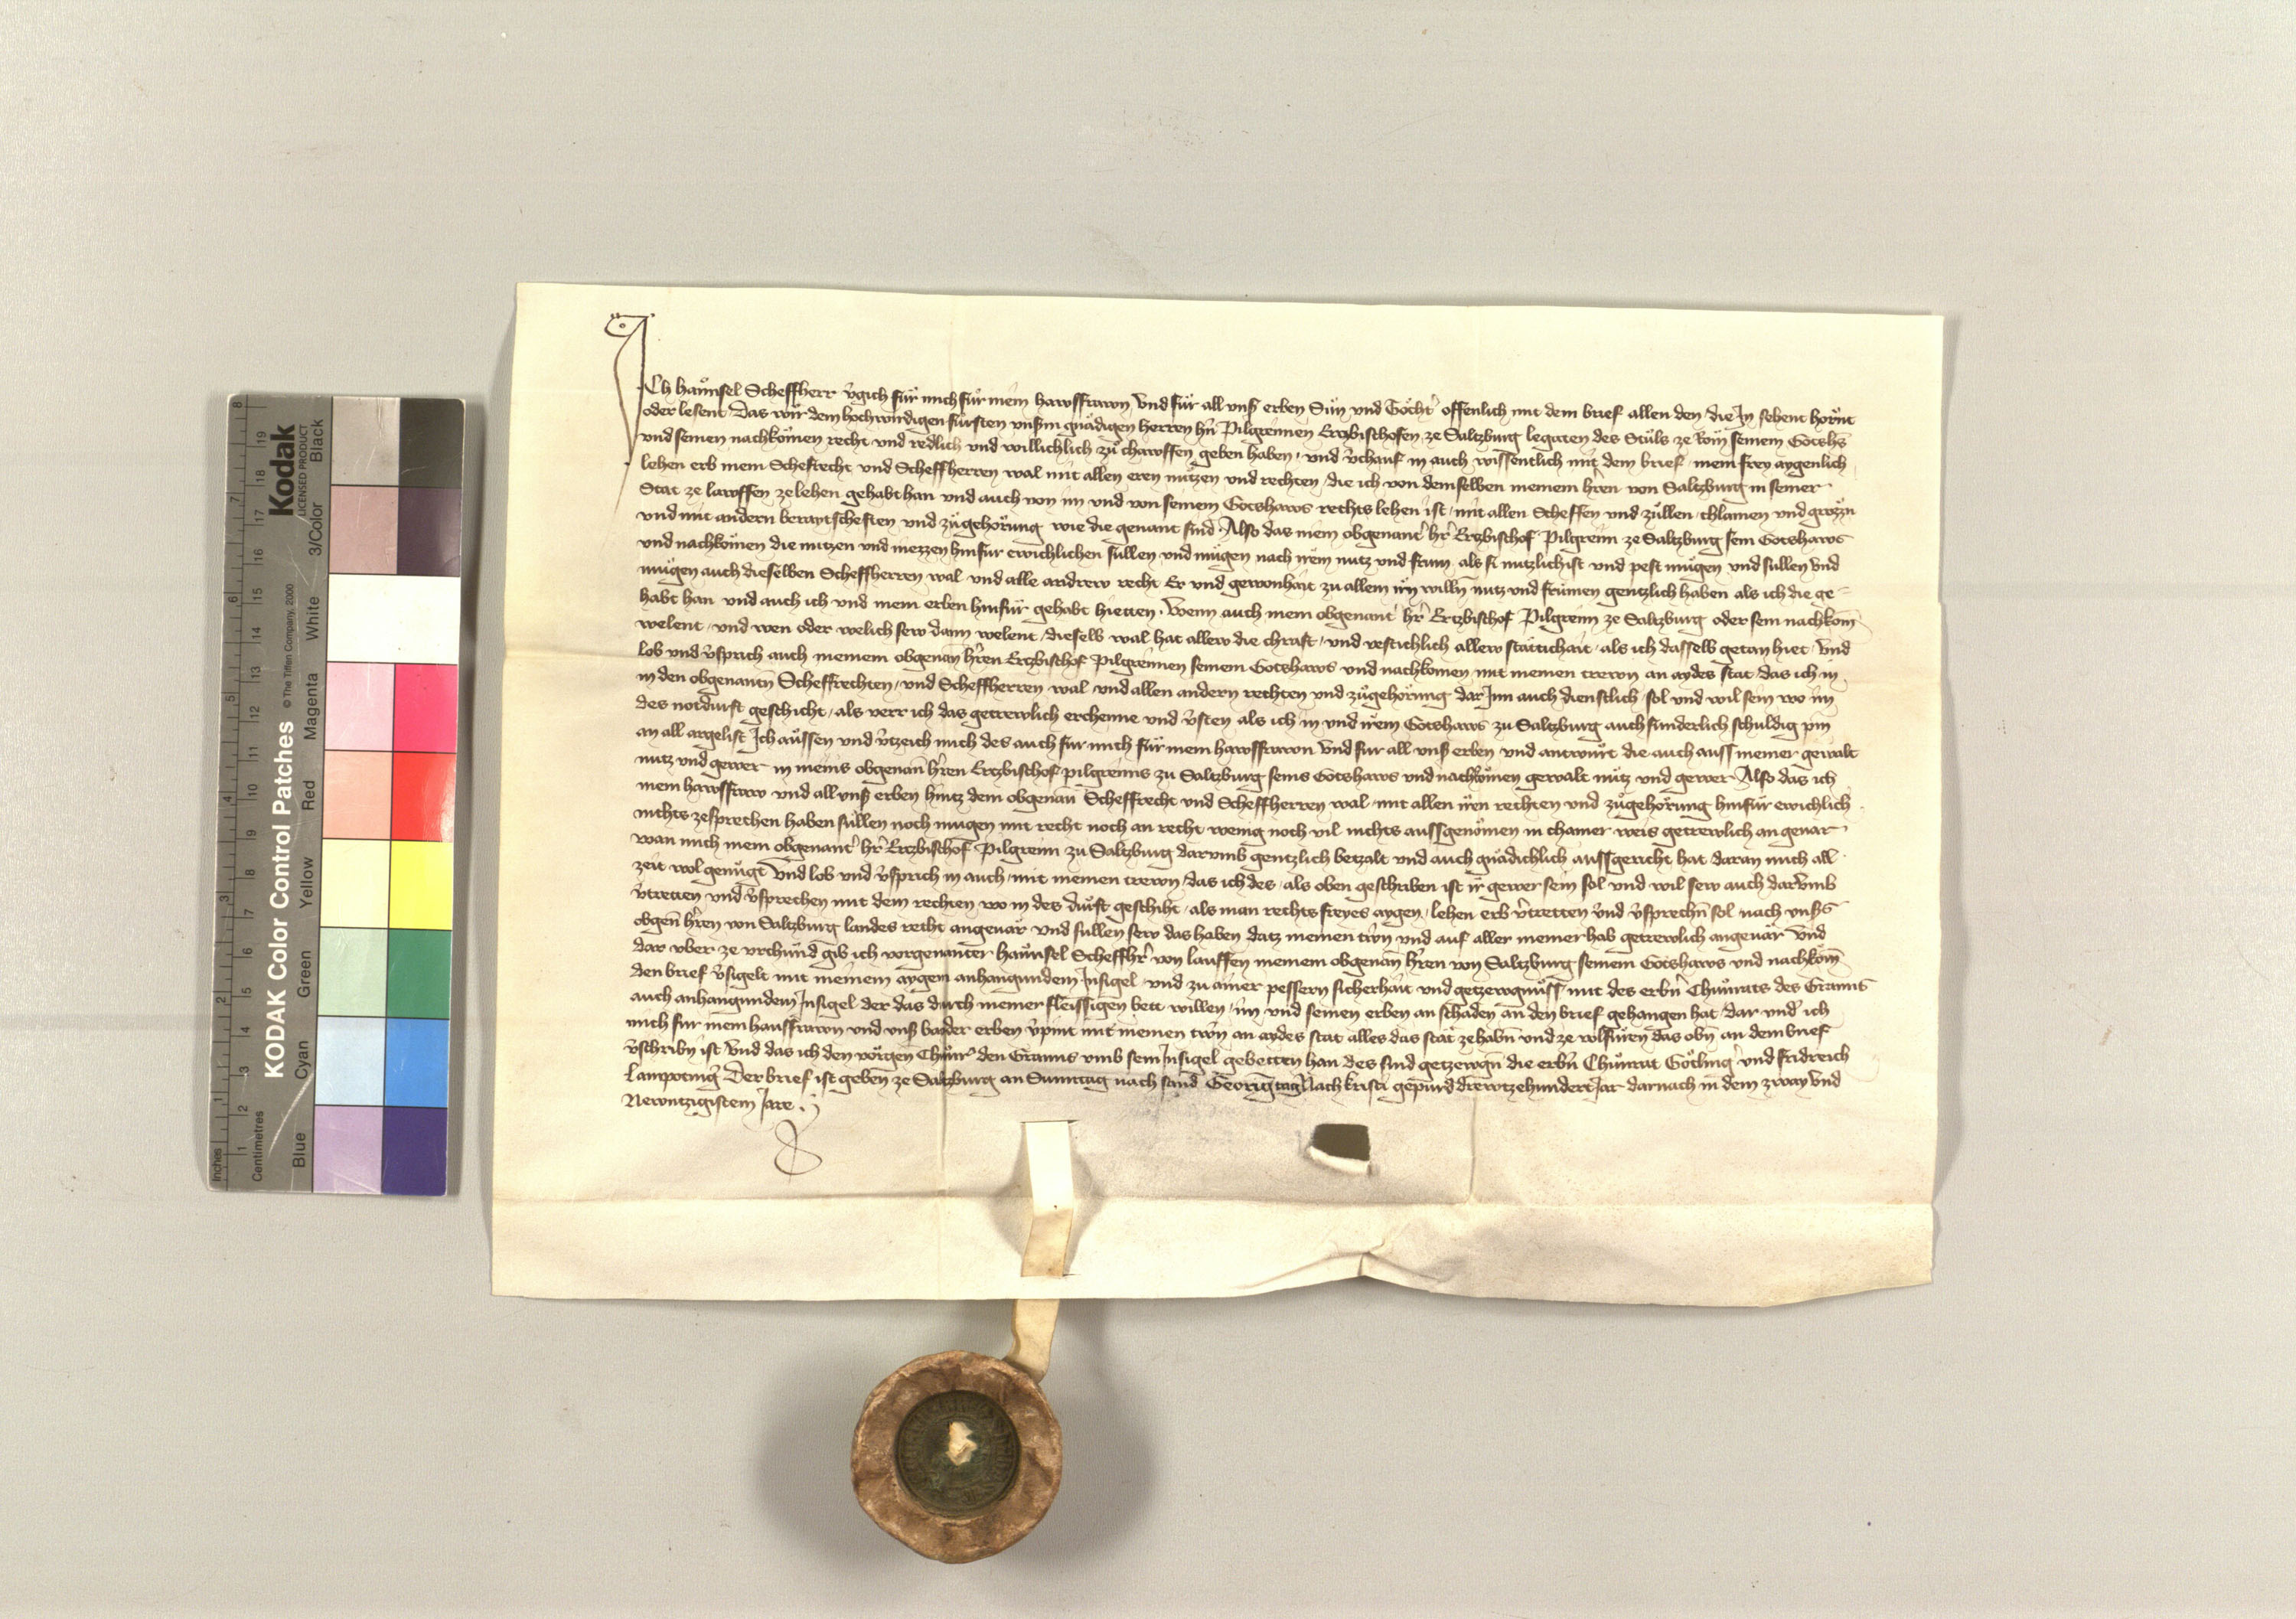 Ich Haünsel Scheffherr v̉gich für mich für mein hawsfrawn Vnd für all vnsẟ erben Sün vnd Töcht̉ offenlich mit dem brief allen den die In sehent hörnt
oder lesent Das wir dem hochwirdigen fürsten vnsẟm gnädigen herren hn̉ Pilgreimen Ertzbischofen ze Saltzburg legaten des Stůls ze Röm seinem Gotshs̄
vnd seinen nachkömen recht vnd redlich vnd willichlich zu chawffen geben haben / vnd v̉chauf in auch wissentlich mit dem brief mein frey aygenlich
lehen erb mein Schefrecht vnd Scheffherren wal mit allen eren nützen vnd rechten / die ich von demselben meinem hr̉en von Saltzburg in seiner
Stat ze lawffen ze lehen gehabt han vnd auch von im vnd von seinem Gotshaws rechts lehen ist / mit allen Scheffen vnd zůllen / chlamen vnd grozzn̄
vnd mit andern beraytscheften vnd zůgehörung wie die genant sind Also das mein obgenant̉ hr̉ Ertzbischof Pilgreim ze Saltzburg sein Gotshaws
vnd nachkömen die nutzen vnd niezzen hinfür ewichlichen süllen vnd mügen nach irem nutz vnd frum als si nutzlichist vnd pest mügen vnd sullen Vnd
mügen auch dieselben Scheffherren wal vnd alle andrew recht Er vnd gewonhait zu allem irn̄ willn̄ nutz vnd frümen gentzlich haben als ich die ge-
habt han vnd auch ich vnd mein erben hinfür gehabt hietten. Wenn auch mein obgenant̉ hr̉ Ertzbischof Pilgreim ze Saltzburg oder sein nachkom̄
welent / vnd wen oder welich sew dann welent / dieselb wal hat allew die chraft / vnd vestichlich allew stätichait / als ich dasselb getan hiet / Vnd
lob vnd v̉sprich auch meinem obgenan̄ hr̉en Ertzbischof Pilgreimen seinem Gotshaws vnd nachkomen mit meinen trewn an aydes stat / das ich in
in den obgenantn̄ Scheffrechten / vnd Scheffherren wal vnd allen andern rechten vnd zůgehörung dar Inn auch dienstlich sol vnd wil sein wo im
des notdurft geschicht / als verr ich das getrewlich erchenne vnd v̉sten als ich in vnd irem Gotshaws zu Saltzburg auch sunderlich schuldig pin
an all argelist Ich aüssen vnd v̉tzeich mich des auch für mich für mein hawsfrawn Vnd für all vnsẟ erben vnd antwürt die auch auss meiner gewalt
nutz vnd gewer in meins obgenan̄ hr̉en Ertzbischof pilgreims zu Saltzburg seins Gotshaws vnd nachkömen gewalt nutz vnd gewer Also das ich
mein hawsfraw vnd all vnsẟ erben hintz dem obgenan̄ Scheffrecht vnd Scheffherren wal / mit allen irn̄ rechten vnd zůgehörung hinfür ewichlich
nichts ze sprechen haben süllen noch mugen mit recht noch an recht / wenig noch vil nichts aussgenömen in chainer weis getrewlich an geuar
wan mich mein obgenant̉ hr̉ Ertzbischof Pilgreim zu Saltzburg darvmb gentzlich betzalt vnd auch gnädichlich aussgericht hat daran mich all
zeit wol genügt Vnd lob vnd v̉sprich in auch / mit meinen trewn / das ich des / als oben geschriben ist ir̉ gewer sein sol vnd wil sew auch darvmb
v̉tretten vnd v̉sprechen mit dem rechten wo in des důrft geschiht / als man rechts freyes aygen / lehen erb v̉tretten vnd v̉sprechn̄ sol nach vnsẟs
obgen̄ hr̉en von Saltzburg landes recht angeuär vnd sullen sew das haben datz meinen tr̉wn vnd auf aller meiner hab getrewlich angeuär Vnd
dar vber ze vrchünd gib ich vorgenanter Haünsel Scheffhr̉ von lauffen meinem obgenan̄ hr̉en von Saltzburg seinem Gotshaws vnd nachköm̄
den brief v̉sigelt mit meinem aygem anhangundem Insigel / vnd zu ainer pessern sicherhait vnd getzewgnüss mit des erbn̉ Chůnrats des Grams
auch anhangundem Insigel der das durch meiner fleissigen bett willen / im vnd seinen erben an schaden an den brief gehangen hat / dar vnd̉ ich
mich für mein hausfrawn vnd vnsẟ bayder erben v̉pint mit meinen tr̉wn an aydes stat alles das stät ze habn̄ vnd ze volfüren das obn̄ an dem brief
v̉schribn̄ ist Vnd das ich den vorgen Chůnr̉ den Grams vmb sein Insigel gebetten han des sind getzewgn̄ die erbn̉ Chůnrat Götling̉ vnd fridreich
Lampoting̉ Der brief ist geben ze Saltzburg an Sunntag nach sand Georigen tag Nach Kristi gepurd drewtzehundert Jar darnach in dem zway Vnd
Newntzigistem Jare.